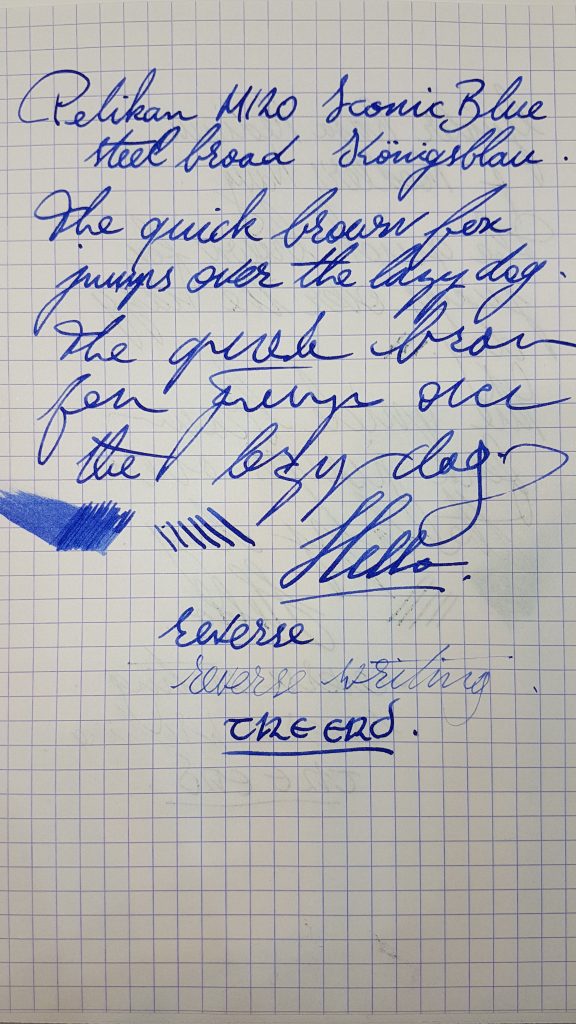 Pelikan M120 Iconic Blue
steel broad Königsblau.
The quick brown fox
jumps over the lazy dog.
The quick brown
fox jumps over
the lazy dog.
Hello.
reverse
reverse writing.
THE END.